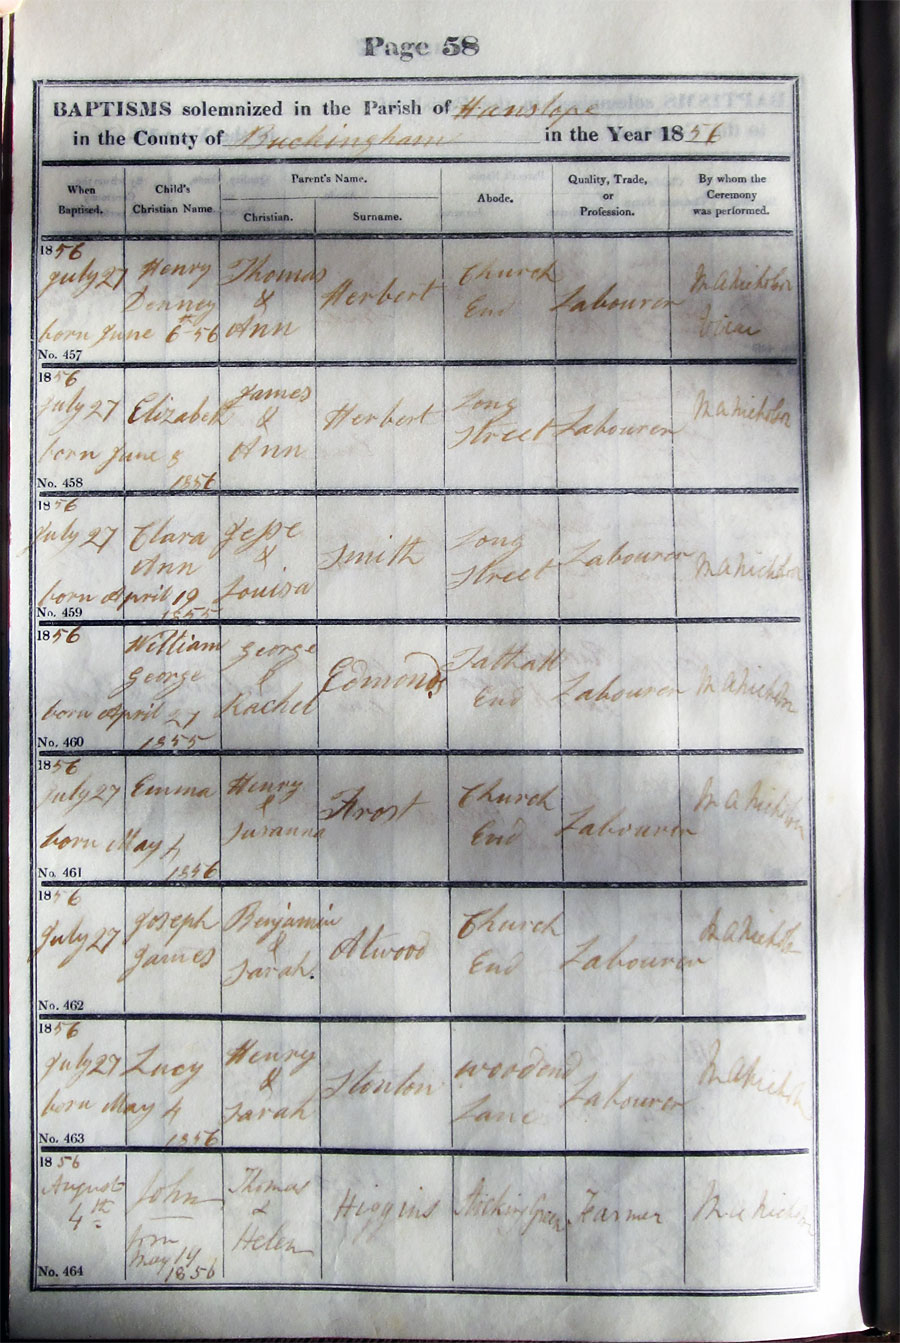 Page 58
BAPTISMS solemnized in the Parish of Hanslope
in the County of Buckingham in the Year 1856
When Baptised. Child's Christian Name Parent's Name. Christian. Surname. Abode. Quality, Trade, or Profession. By whom the Ceremony was performed.
1856
July 27 Henry Thomas Church
Denney & Herbert End Labourer M A Nicholson
born June 6th 56 Ann Vicar
No. 457
1856
July 27 Elizabeth James & Herbert Long Labourer M A Nicholson
born June 8 Ann Street
No. 458 1856
1856
July 27 Clara Jesse & Smith Long Labourer
Ann Street M A Nicholson
born April 19 Louisa
No. 459 1855
1856
William George Tathall
George & Edmonds End Labourer M A Nicholson
born April 27 Rachel
No. 460 1855
1856
July 27 Emma Henry & Frost Church M A Nicholson
born May 4 Susanna End Labourer
No. 461 1856
1856
July 27 Joseph Benjamin Church M A Nichols
James & Atwood End Labourer
Sarah.
No. 462
1856
July 27 Lucy Henry Woodend M A Nicholson
born May 4 & Sarah Stonton Lane Labourer
No. 463 1856
1856
August John Thomas
4th & Higgins Green Farmer M A Nicholson
born Helen
May 14
No. 464 1856